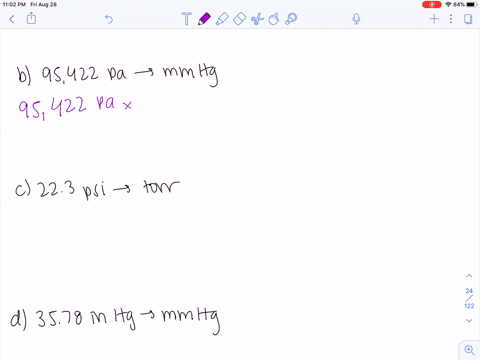 11:02 PM Fri Aug 28
84%
b) 95,422 pa → mmHg
95,422 pa x
c) 22.3 psi → torr
d) 35.78 in Hg → mmHg
24
/
122